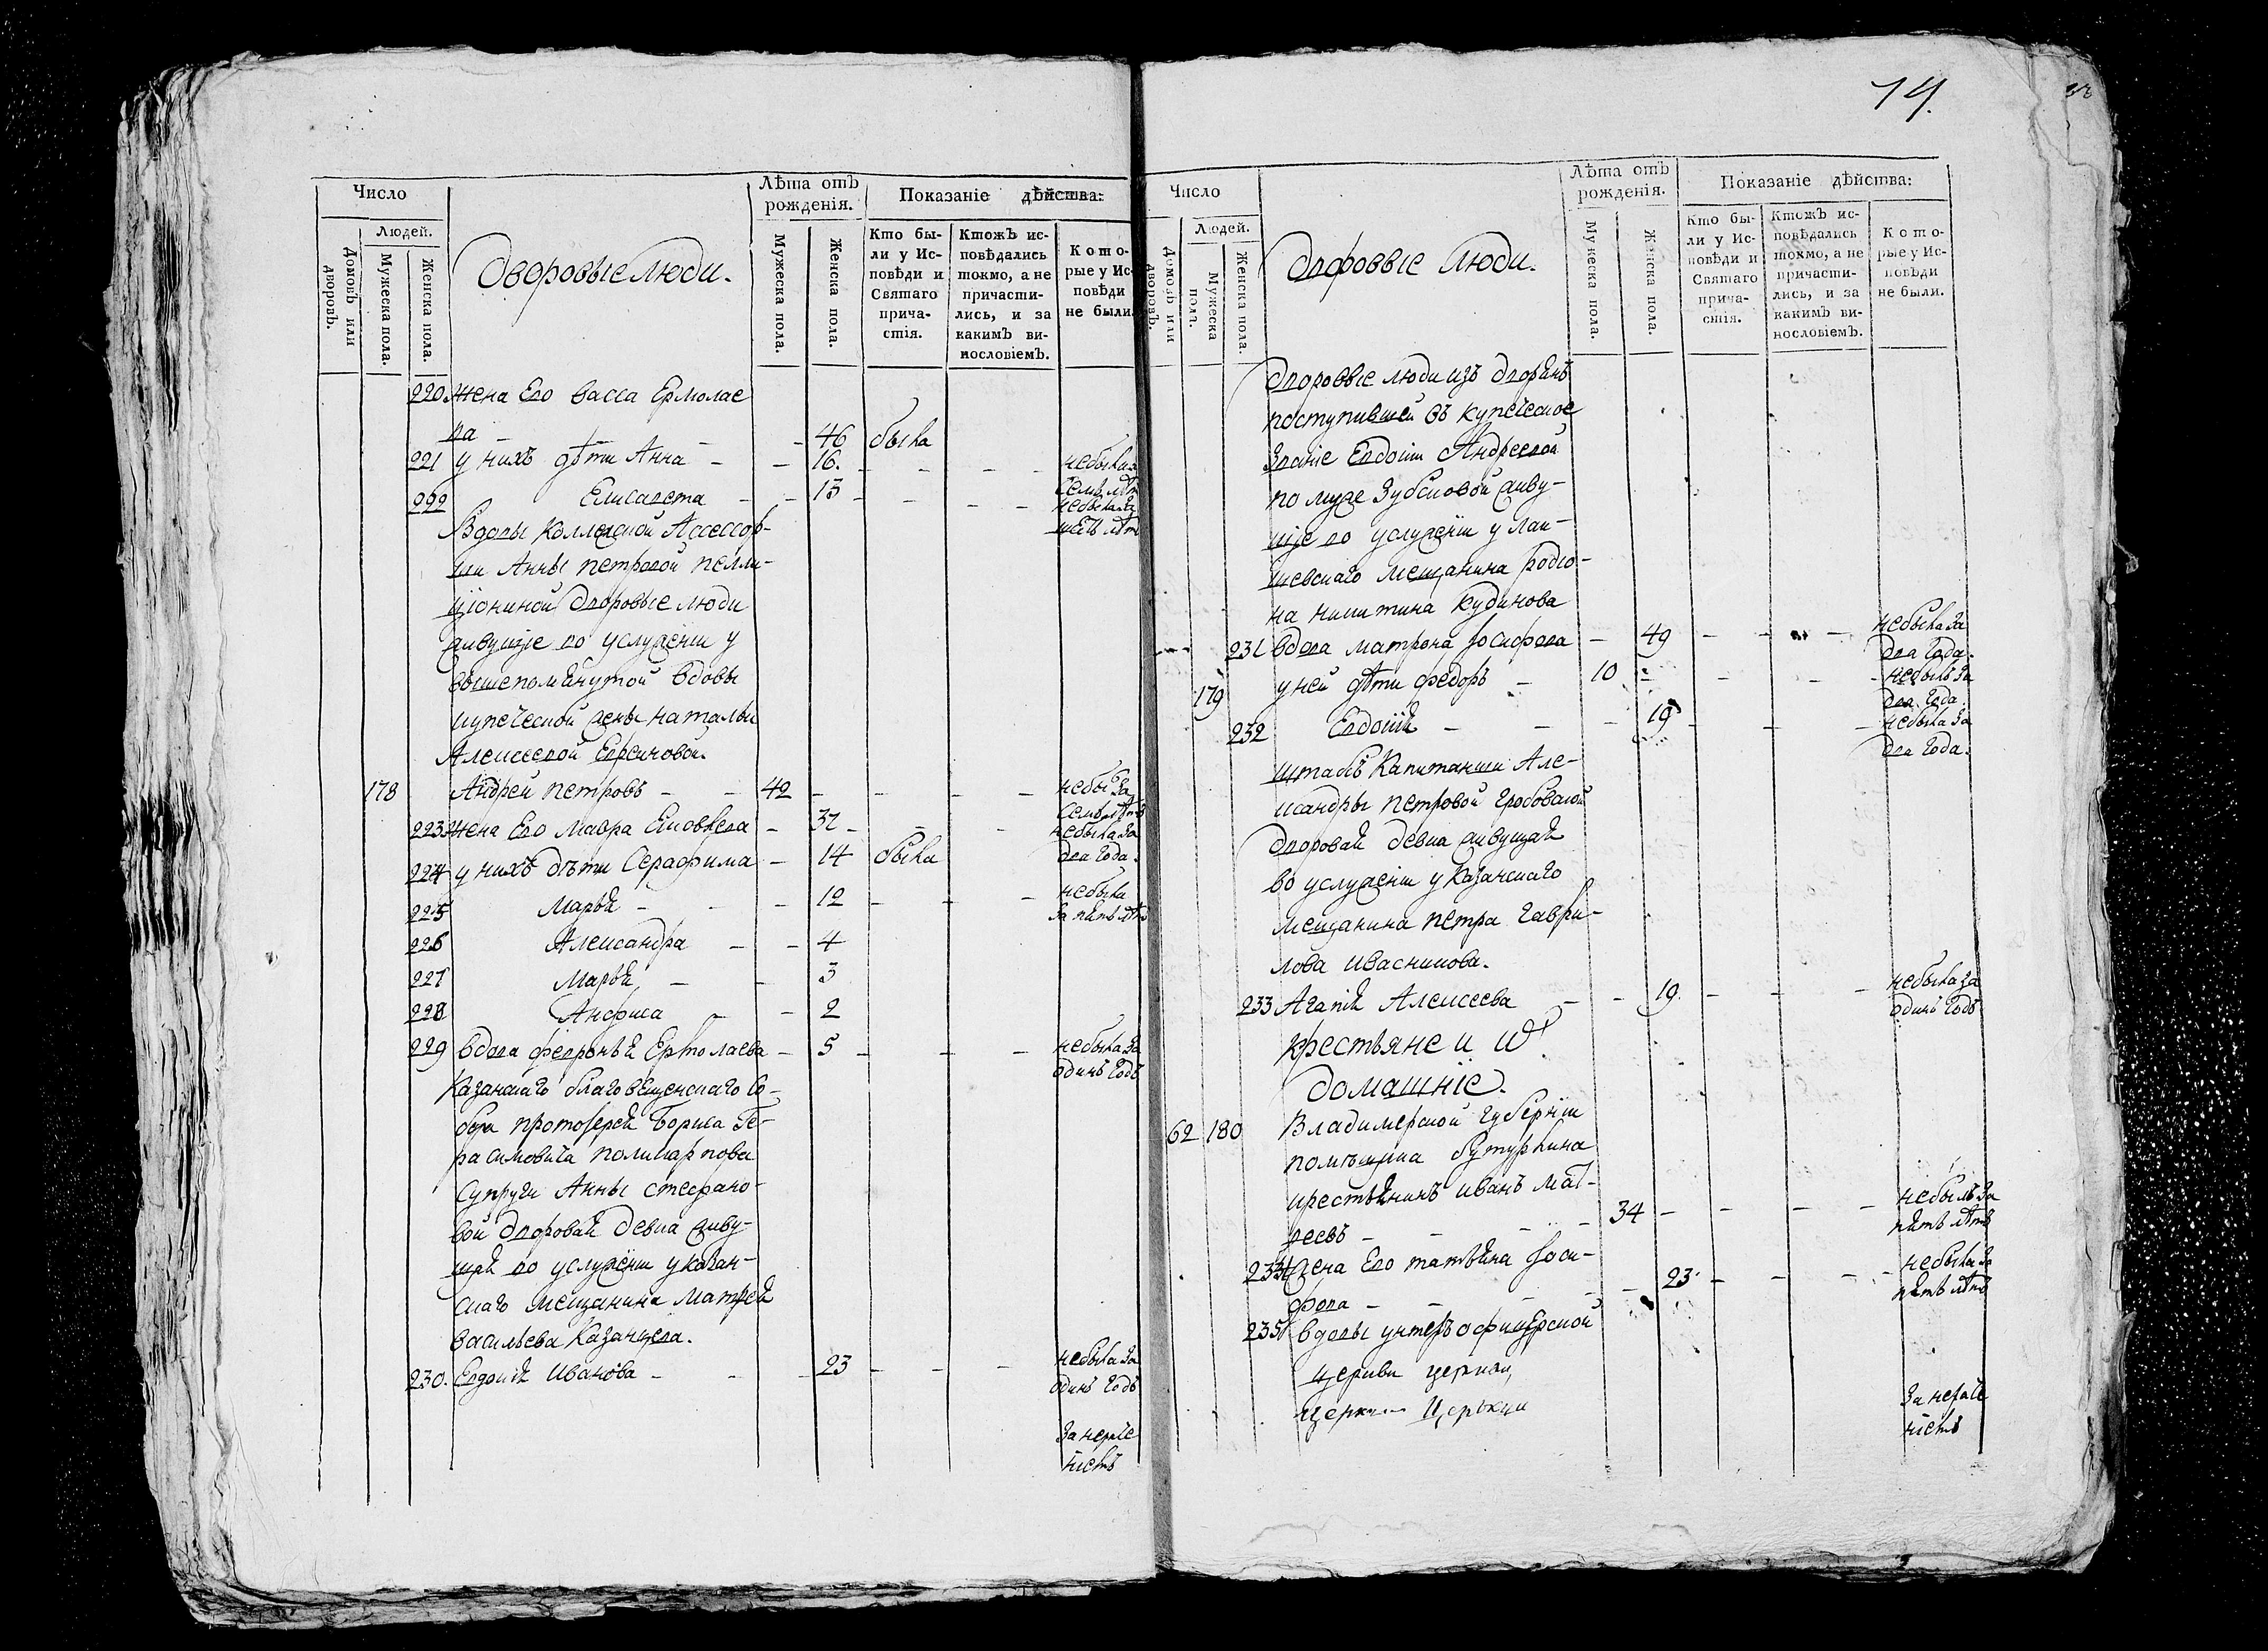 14.
Число
Людей.
Домовъ или дворовъ.
Мужеска пола.
Женска пола.
Дворовые люди.
Лѣта отъ рожденія.
Мужеска пола.
Женска пола.
Показаніе дѣйства:
Кто были у Исповѣди и Святаго причастія.
Ктожъ исповѣдались токмо, а не причастились, и за какимъ винословіемъ.
Которые у Исповѣди не были.
220. Жена Его васса Ермолае
ва - - - 46 была
221 у нихъ дѣти Анна - - 16. - - - - небыла за
семь лѣтъ
222 Елисавета - - 13 - - - - небыла за
шесть лѣтъ
Вдовы Коллежской Ассессор-
ши Анны петровой пелли-
ціониной дворовые люди
живущіе во услуженіи у
вышепомянутой вдовы
купеческой жены натальи
Алексеевой
178 Андрей петровъ - - 42 - - - - небы за
семь лѣтъ
223. Жена Его мавра - 32 - - - небыла за
два года.
224 у нихъ дѣти Серафима - 14 была
225 марья - - - 12 - - - небыла
за пять лѣтъ
226 Александра - - 4
227 марья - - 3
228 Анфиса - - 2
229 вдова февронья Ермолаева - 5 - - - небыла за
одинъ годъ
Казанскаго благовещенскаго со-
бора протоіерея Бориса Ге-
расимовича поликарпова
супруги Анны стефано-
вой дворовая девка живу-
щая во услуженіи у казан-
скаго мещанина матфея
васильева казанцева.
230. Евдокія Иванова - - - 23 - - - небыла за
одинъ годъ
За нераче
ніемъ
Число
Людей.
Домовъ или дворовъ.
Мужеска пола.
Женска пола.
Дворовые люди.
Лѣта отъ рожденія.
Мужеска пола.
Женска пола.
Показаніе дѣйства:
Кто были у Исповѣди и Святаго причастія.
Ктожъ исповѣдались токмо, а не причастились, и за какимъ винословіемъ.
Которые у Исповѣди не были.
Дворовые люди изъ дворянъ
поступившей въ купеческое
званіе Евдокіи Андреевой
по муже Зубковой живу-
щіе во услуженіи у лаи-
шевскаго мещанина родіо-
на никитина кудинова
231 вдова матрона Іосифова - 49 - - - небыла за
два года.
179 у ней дѣти федоръ - 10 - - - - небылъ за
два года.
232 Евдокія - - - 19 - - - небыла за
два года.
штабсъ Капитанши Але-
ксандры петровой
дворовая девка живущая
во услуженіи у казанскаго
мещанина петра гаври-
лова квасникова.
233 Агапія Алексеева - - 19. - - - небыла за
одинъ годъ
Крестьяне и
домашніе.
62 180 Владимерской губерніи
помѣщика бутурлина
крестьянинъ иванъ мат-
веевъ - - - - 34 - - - - небылъ за
пять лѣтъ
234 жена Его татьяна Іоси-
фова - - - - 23. - - - небыла за
пять лѣтъ
235 вдовы унтеръ офицерской
церкви церкви,
церкви Церкви
За нераче
ніемъ